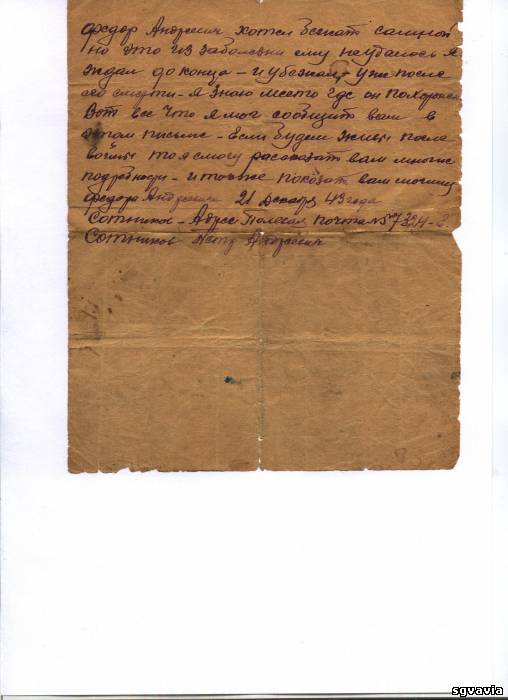 Федор Андреевич хотел бежать самной
но это из заболевни ему неудалось я
ждал до конца - и убежал уже после
его смерти - я знаю место где он похоронен
Вот все что я мог сообщить вам в
этом письме - Если будем живы после
войны то я смогу рассказать вам многие
подробности - и также показать вам могилу
Федора Андреевича 21 декабря 43 года
Сотников - Адрес Полевая почта №
Сотников Петр
sgvavia